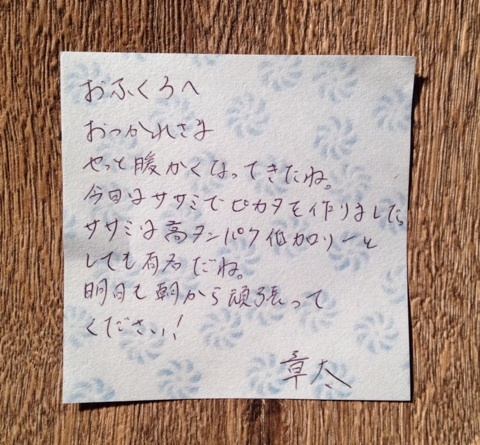 おふくろへ
おつかれさま
やっと暖かくなってきたね。
今日はササミでピカタを作りました。
ササミは高タンパク低カロリーと
しても有名だね。
明日も朝から頑張って
ください!
章太